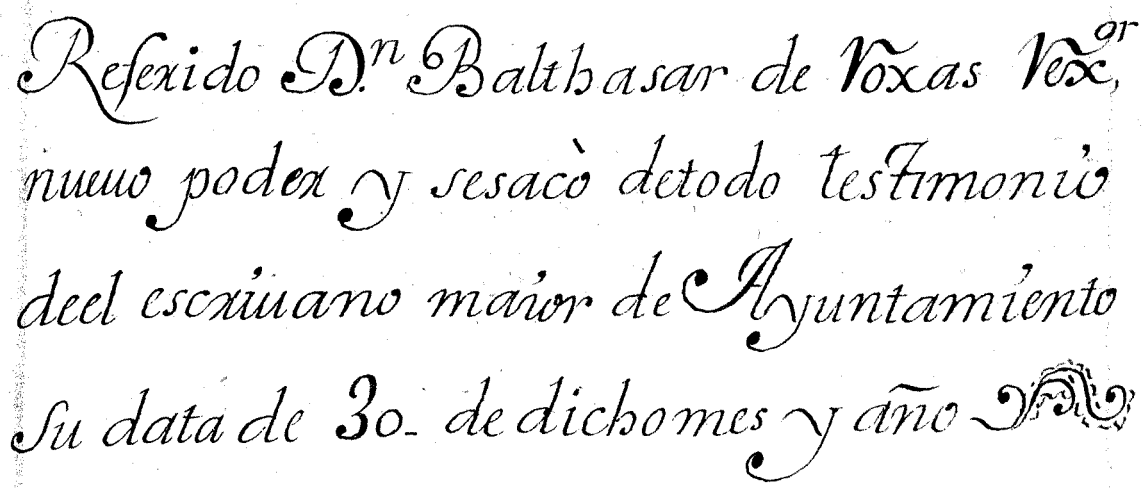 Referido D.ⁿ Balthasar de Roxas Rex.ᵒʳ,
nueuo poder y sesacò detodo testimonio
deel escriuano maior de Ayuntamiento
Su data de 30_ de dichomes y año